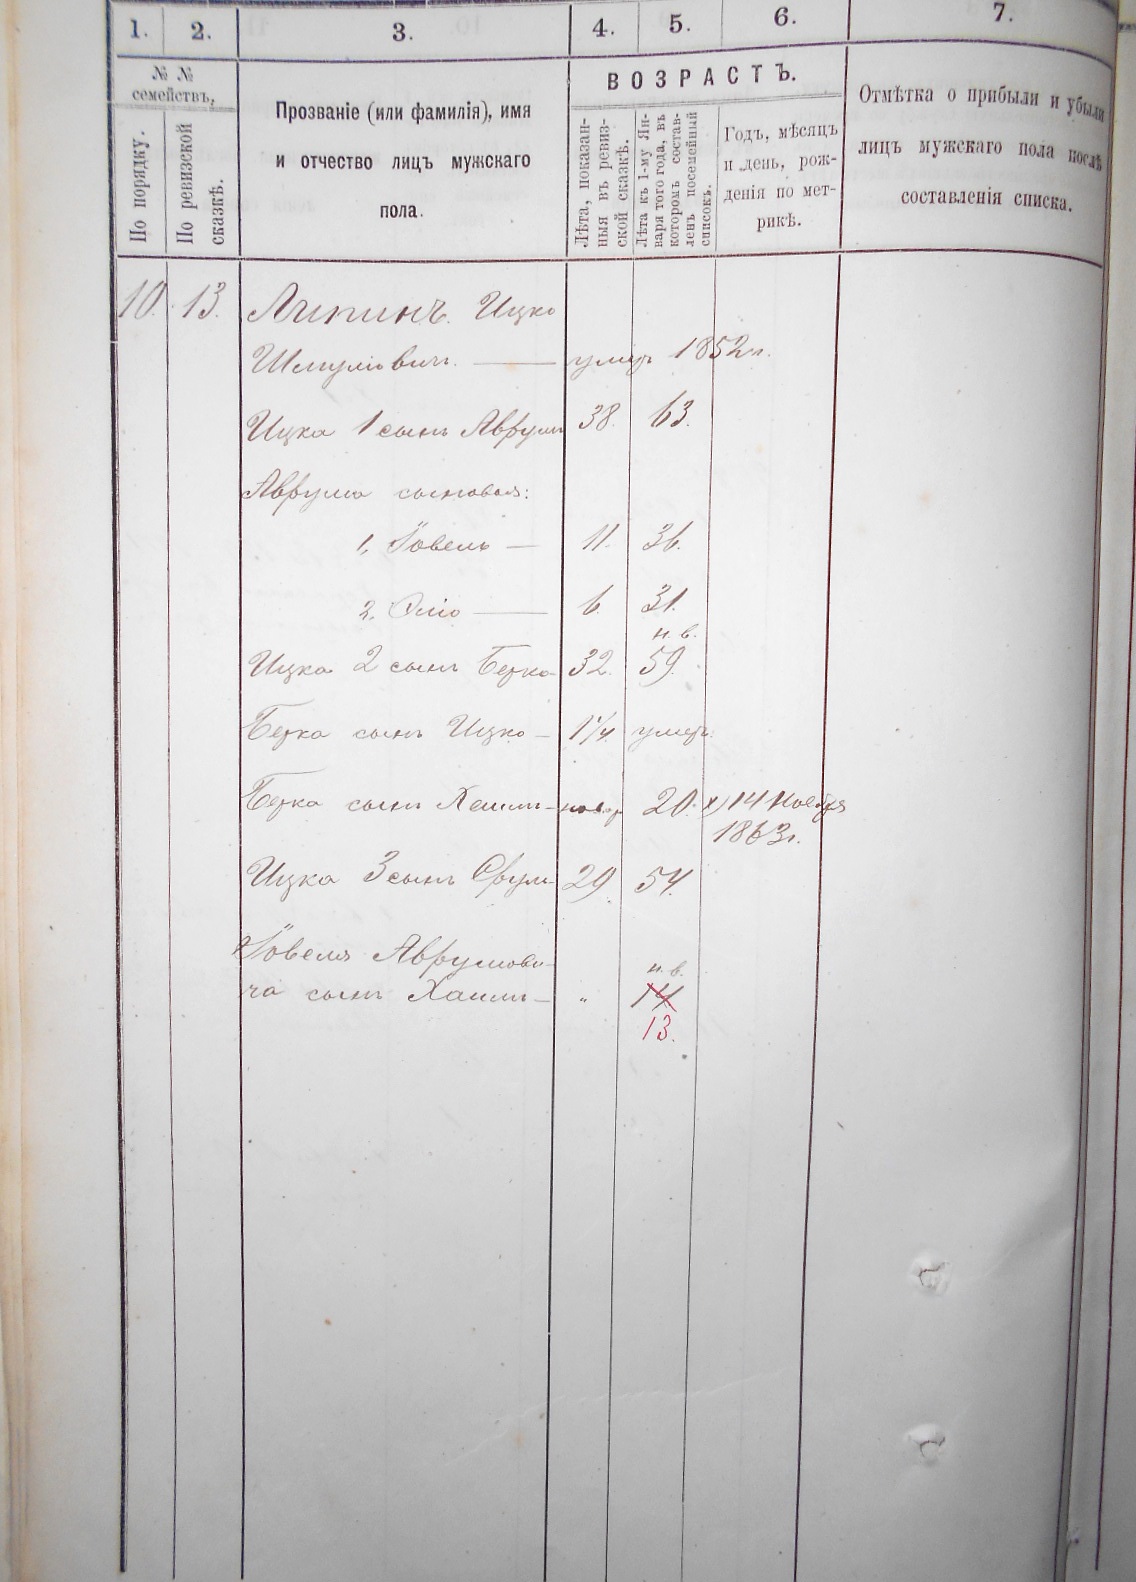 1. 2. 3. 4. 5. 6. 7.
№ №
семействъ,
По порядку.
По ревизской
сказкѣ.
Прозваніе (или фамилія), имя
и отчество лицъ мужскаго
пола.
ВОЗРАСТЪ.
Лѣта, показан-
ныя въ ревиз-
ской сказкѣ.
Лѣта къ 1-му Ян-
варя того года, въ
которомъ состав-
ленъ посемейный
списокъ.
Годъ, мѣсяцъ
и день, рож-
денія по мет-
рикѣ.
Отмѣтка о прибыли и убыли
лицъ мужскаго пола послѣ
составленія списка.
10. 13. Липинъ. Ицко
Шмулiовичъ. — умер 1852 г.
Ицка 1 сынъ Аврумъ 38. 63.
Аврума сыновья:
1, Іовель — 11. 36.
2, Эліо — 6. 31.
н. в.
Ицка 2 сынъ Берко 32. 59.
Берка сынъ Ицко — 1¼. умеръ.
Берка сынъ Хаимъ — 20. 14 Ноября
1863 г.
Ицка 3 сынъ Срулъ 29. 54.
Іовеля Аврумови-
ча сынъ Хаимъ — „ 14
н. в.
13.